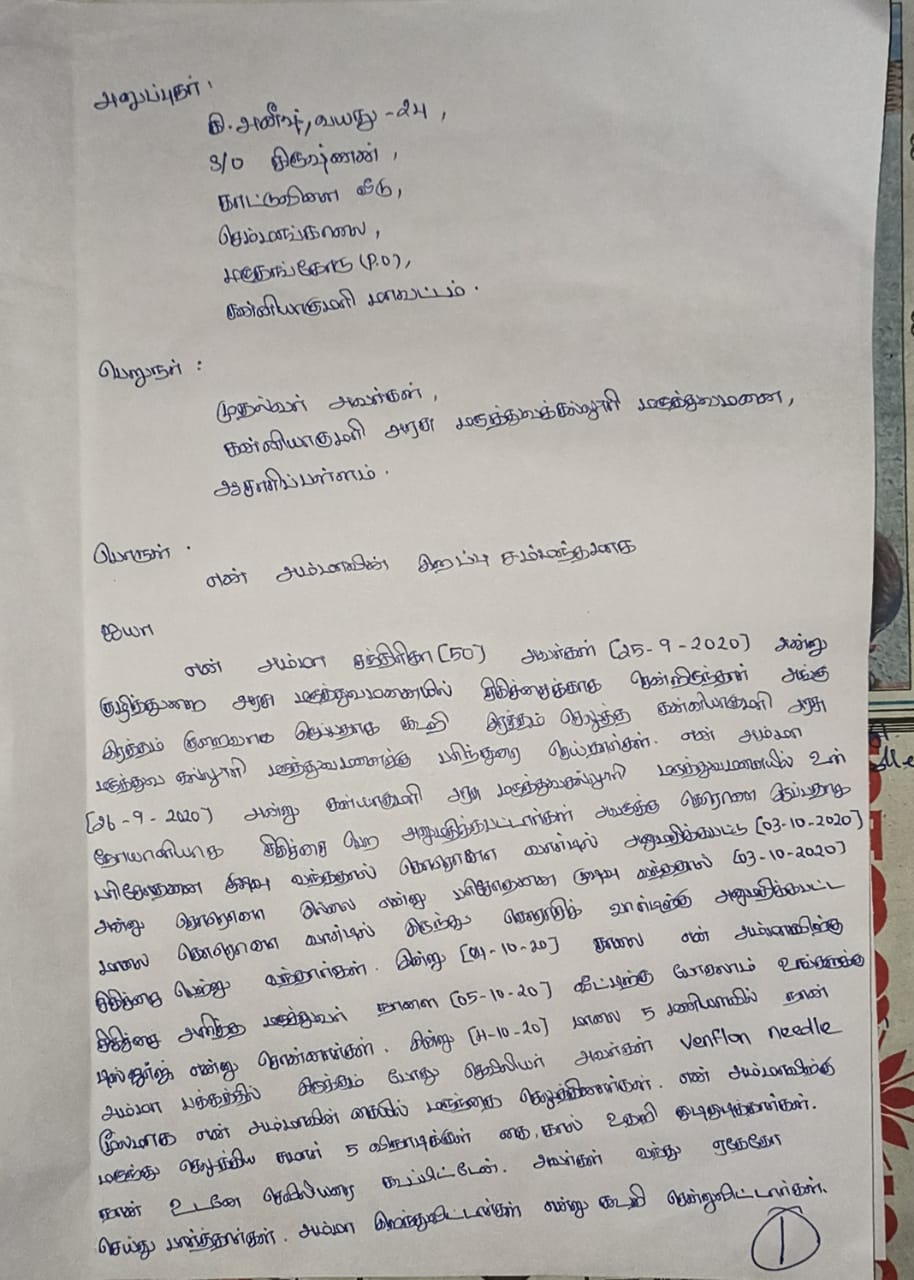 அனுப்புநர் :
கி. அனீஷ், வயது - 24,
S/O கிருஷ்ணன்,
காட்டுவிளை வீடு,
செம்மங்காலை,
மருதங்கோடு (P.O),
கன்னியாகுமரி மாவட்டம்.
பெறுநர் :
முதல்வர் அவர்கள்,
கன்னியாகுமரி அரசு மருத்துவக்கல்லூரி மருத்துவமனை,
ஆசாரிப்பள்ளம்.
பொருள் .
என் அம்மாவின் இறப்பு சம்மந்தமாக
ஐயா
என் அம்மா சந்திரிகா [50] அவர்கள் [25-9-2020] அன்று
குழித்துறை அரசு மருத்துவமனையில் சிகிச்சைக்காக சென்றிருந்தார் அங்கு
இரத்தம் குறைவாக இருப்பதாக கூறி இரத்தம் செலுத்த கன்னியாகுமரி அரசு
மருத்துவ கல்லூரி மருத்துவமனைக்கு பரிந்துரை செய்தார்கள். என் அம்மா
[26-9-2020] அன்று கன்யாகுமரி அரசு மருத்துவகல்லூரி மருத்துவமனையில் உள்
நோயாளியாக சிகிச்சை பெற அனுமதிக்கபட்டார்கள் அவருக்கு கொரோனா இருப்பதாக
பரிசோதனை முடிவு வந்ததால் கொரோனா வார்டில் அனுமதிக்கபட்டு [03-10-2020]
அன்று கொரோனா இல்லை என்று பரிசோதனை முடிவு வந்ததால் [03-10-2020]
மாலை கொரோனா வார்டில் இருந்து வார்டிற்கு அனுமதிக்கபட்ட
சிகிச்சை பெற்று வந்தார்கள். இன்று [04-10-20] காலை என் அம்மாவிற்கு
சிகிச்சை அளித்த மருத்துவர் நாளை [05-10-20] வீட்டிற்கு போகலாம் உங்களுக்கு
டிஸ்ஜார்ஜ் என்று சொன்னார்கள். இன்று [4-10-20] மாலை 5 மணியளவில் நான்
அம்மா பக்கத்தில் இருக்கும் போது செவிலியர் அவர்கள் Venflon needle
மூலமாக என் அம்மாவின் கையில் மருந்தை செலுத்தினார்கள். என் அம்மாவிற்கு
மருந்து செலுத்திய சுமார் 5 விநாடிக்குள் கை, கால் உதறி துடிதுடித்தார்கள்.
நான் உடனே செவிலியரை கூப்பிட்டேன். அவர்கள் வந்து ஏதேதோ
செய்து பார்த்தார்கள். அம்மா இறந்துவிட்டார்கள் என்று கூறி சென்றுவிட்டார்கள்.
1